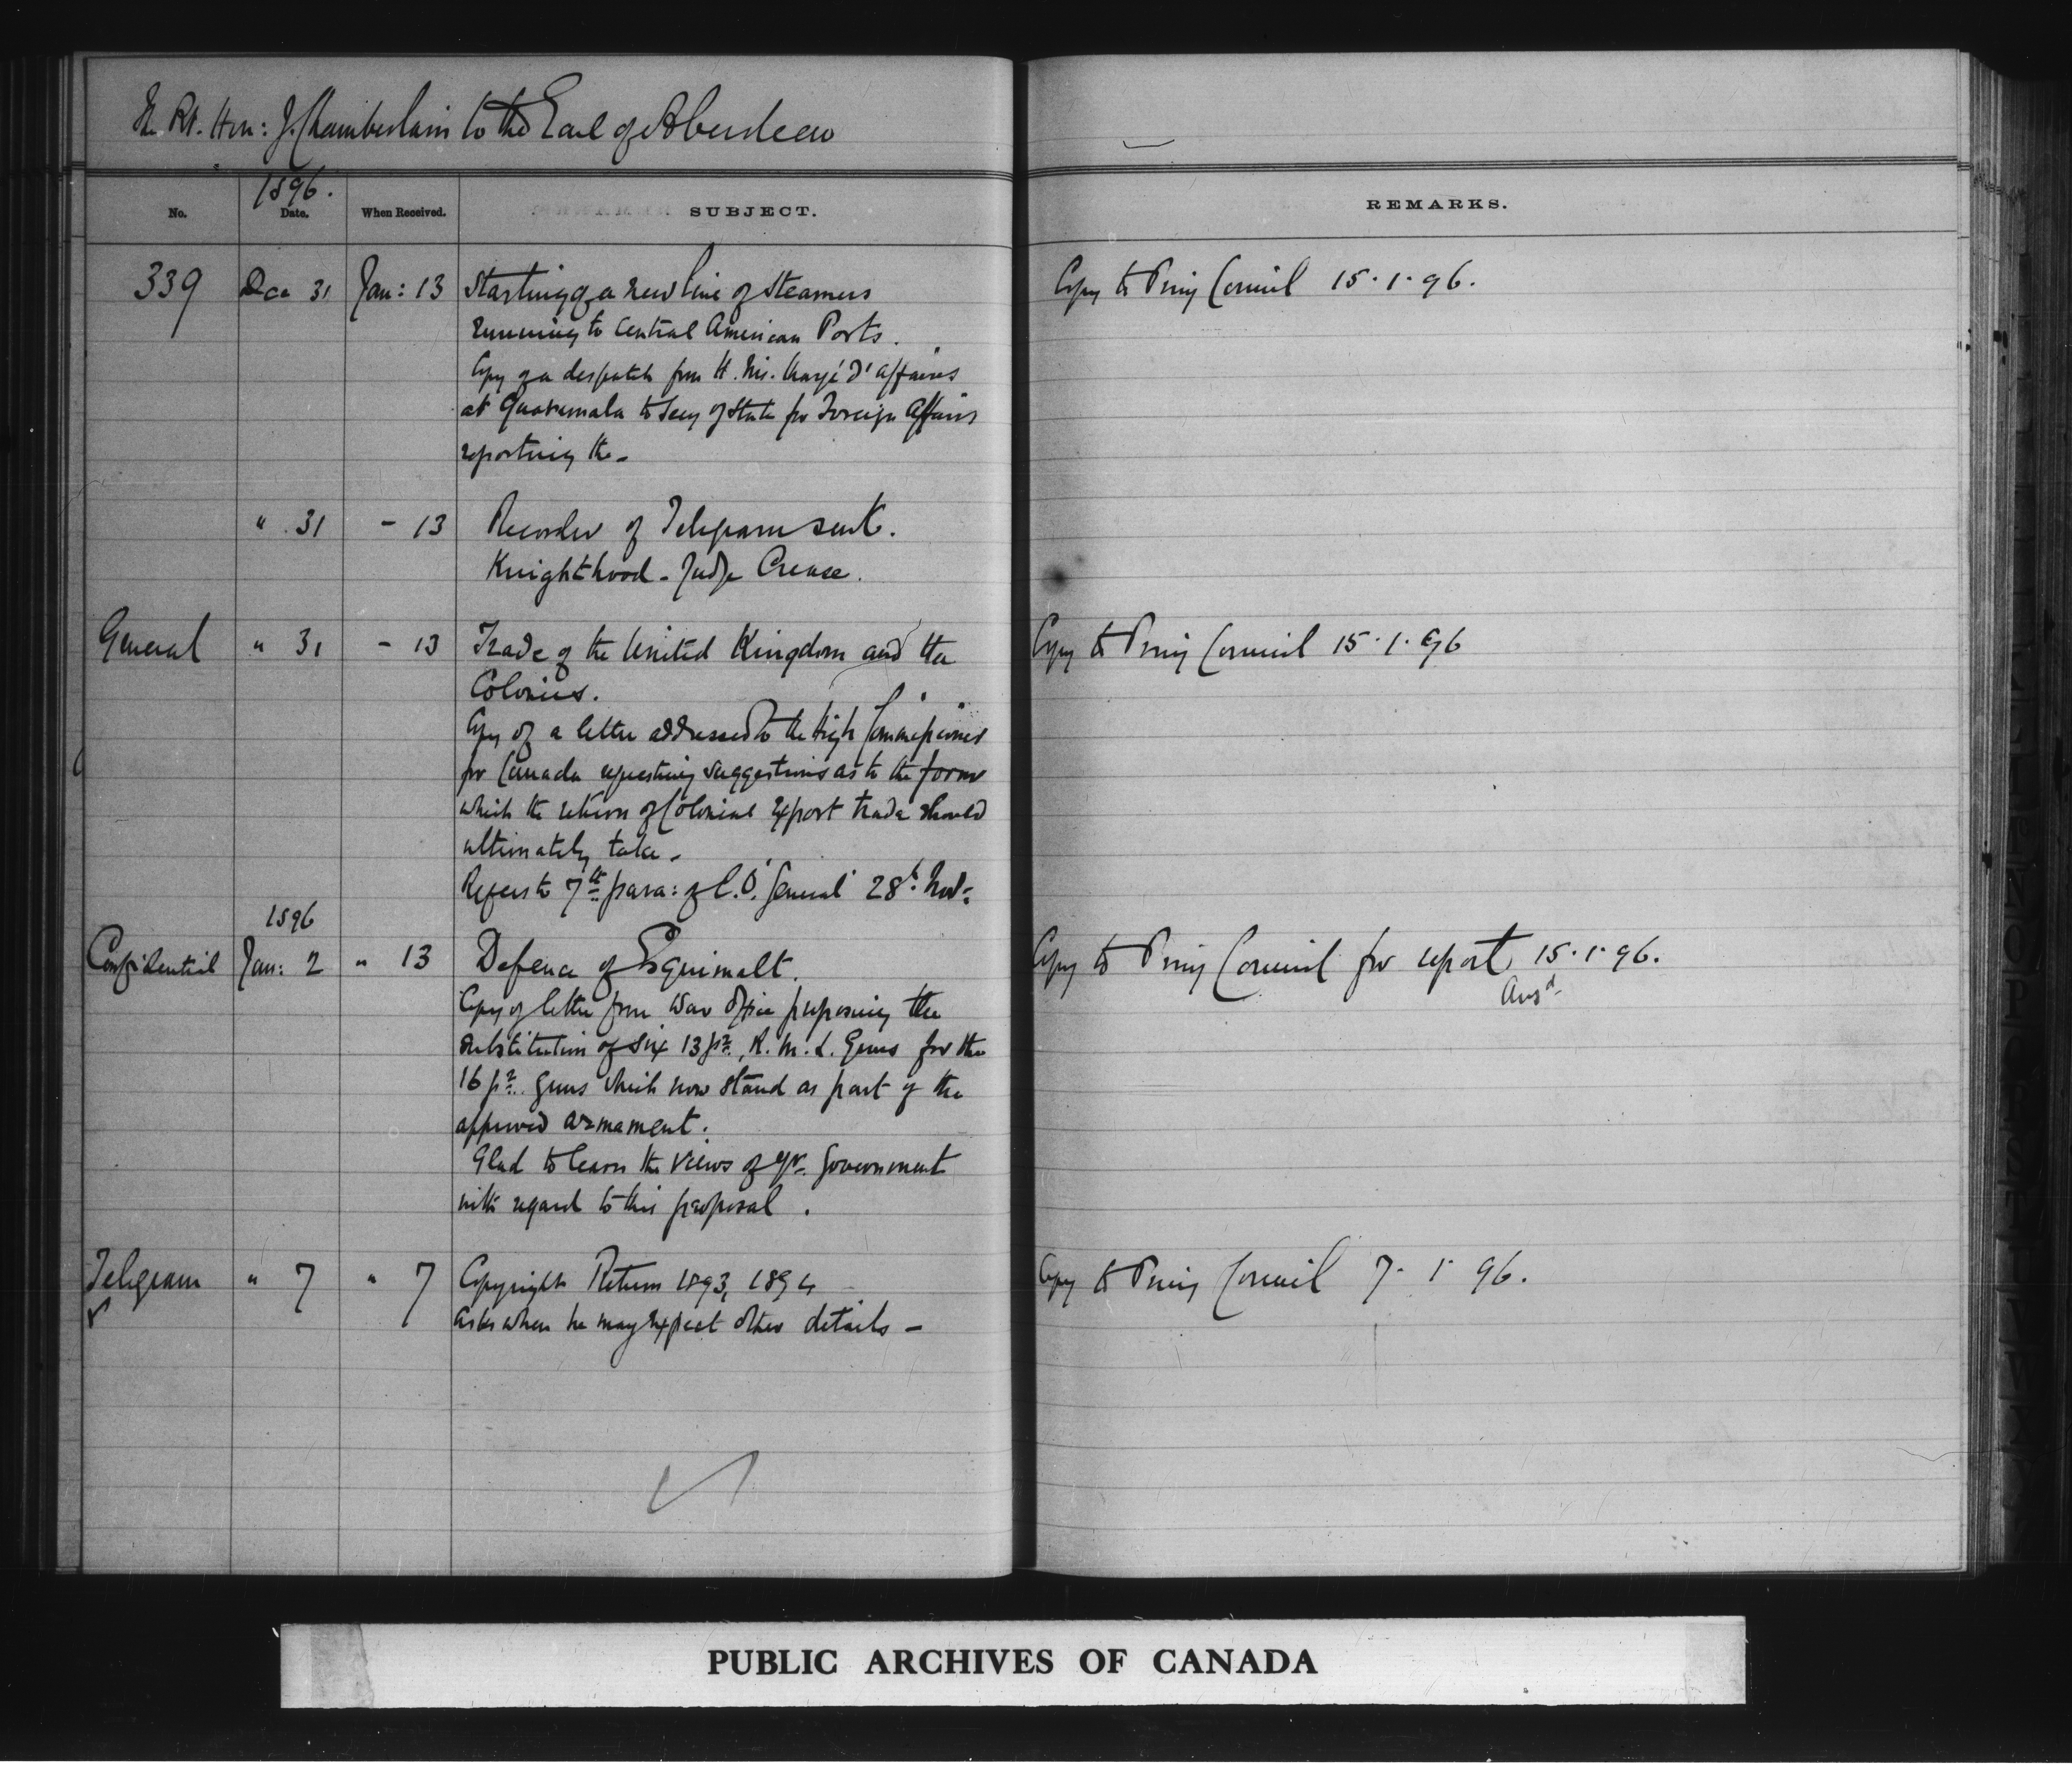 The Rt. Hon: J. Chamberlain to the Earl of Aberdeen
1896.
No. Date. When Received. SUBJECT. REMARKS.
339 Dec 31 Jan: 13 Starting of a new line of Steamers Copy to Privy Council 15.1.96.
running to Central American Ports.
Copy of a despatch from H. Ms. Chargé d'Affaires
at Guatemala to Secy of State for Foreign Affairs
reporting the -
" 31 - 13 Recorder of Telegram sent.
Knighthood - Judge Crease.
General " 31 - 13 Trade of the United Kingdom and the Copy to Privy Council 15.1.96
Colonies.
Copy of a letter addressed to the High Commissioner
for Canada requesting suggestions as to the form
which the return of Colonial export trade should
ultimately take -
Refers to 7th para: of C.O. General 28th Nov:
1896
Confidential Jan: 2 " 13 Defence of Esquimalt. Copy to Privy Council for report 15.1.96.
Ansd
Copy of letter from War Office proposing the
substitution of six 13 pr. R. M. L. Guns for the
16 pr. guns which now stand as part of the
approved armament.
Glad to learn the views of yr. Government
with regard to this proposal.
Telegram " 7 " 7 Copyright Return 1893, 1894 Copy to Privy Council 7.1.96.
asks when he may expect other details -
PUBLIC ARCHIVES OF CANADA